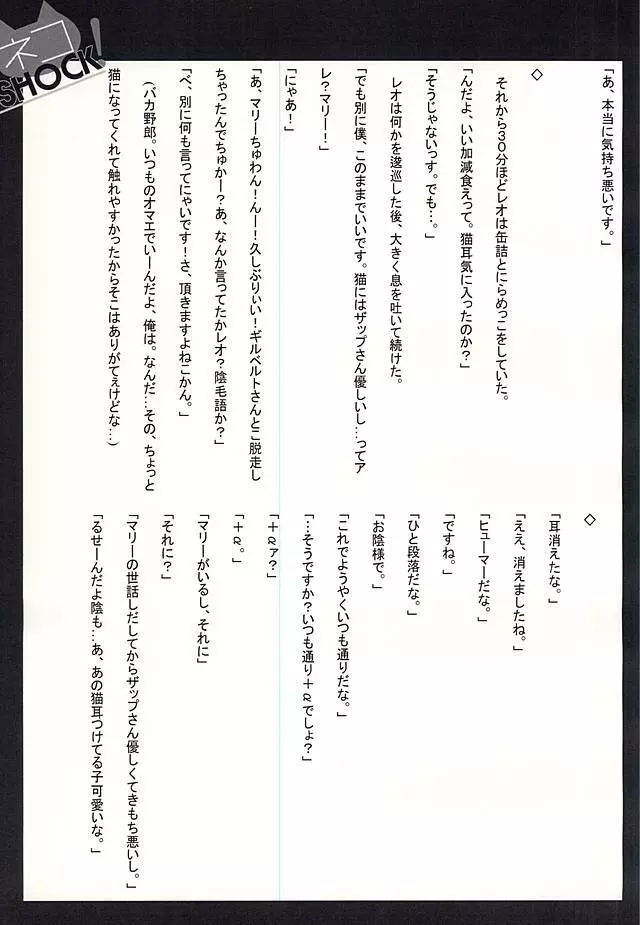 ネコ
SHOCK!
「あ、本当に気持ち悪いです。」
◇
それから30分ほどレオは缶詰とにらめっこをしていた。
「んだよ、いい加減食えって。猫耳気に入ったのか?」
「そうじゃないっす。でも…。」
レオは何かを逡巡した後、大きく息を吐いて続けた。
「でも別に僕、このままでいいです。猫にはザップさん優しいし…ってア
レ?マリー!」
「にゃあ!」
「あ、マリーちゅわん!んー!久しぶりぃい!ギルベルトさんとこ脱走し
ちゃったんでちゅかー?あ、なんか言ってたかレオ?陰毛語か?」
「べ、別に何も言ってにゃいです!さ、頂きますよねこかん。」
(バカ野郎。いつものオマエでいーんだよ、俺は。なんだ…その、ちょっと
猫になってくれて触れやすかったからそこはありがてぇけどな…)
◇
「耳消えたな。」
「ええ、消えましたね。」
「ヒューマーだな。」
「ですね。」
「ひと段落だな。」
「お陰様で。」
「これでようやくいつも通りだな。」
「…そうですか?いつも通り+αでしょ?」
「+αァ?」
「+α。」
「マリーがいるし、それに」
「それに?」
「マリーの世話しだしてからザップさん優しくてきもち悪いし。」
「るせーんだよ陰も…あ、あの猫耳つけてる子可愛いな。」